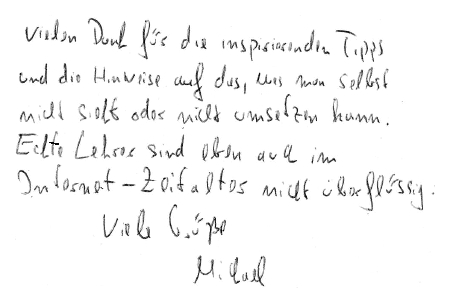 Vielen Dank für die inspirierenden Tipps
und die Hinweise auf das, was man selbst
nicht sieht oder nicht umsetzen kann.
Echte Lehrer sind eben auch im
Internet-Zeitalter nicht überflüssig.
Viele Grüße
Michael